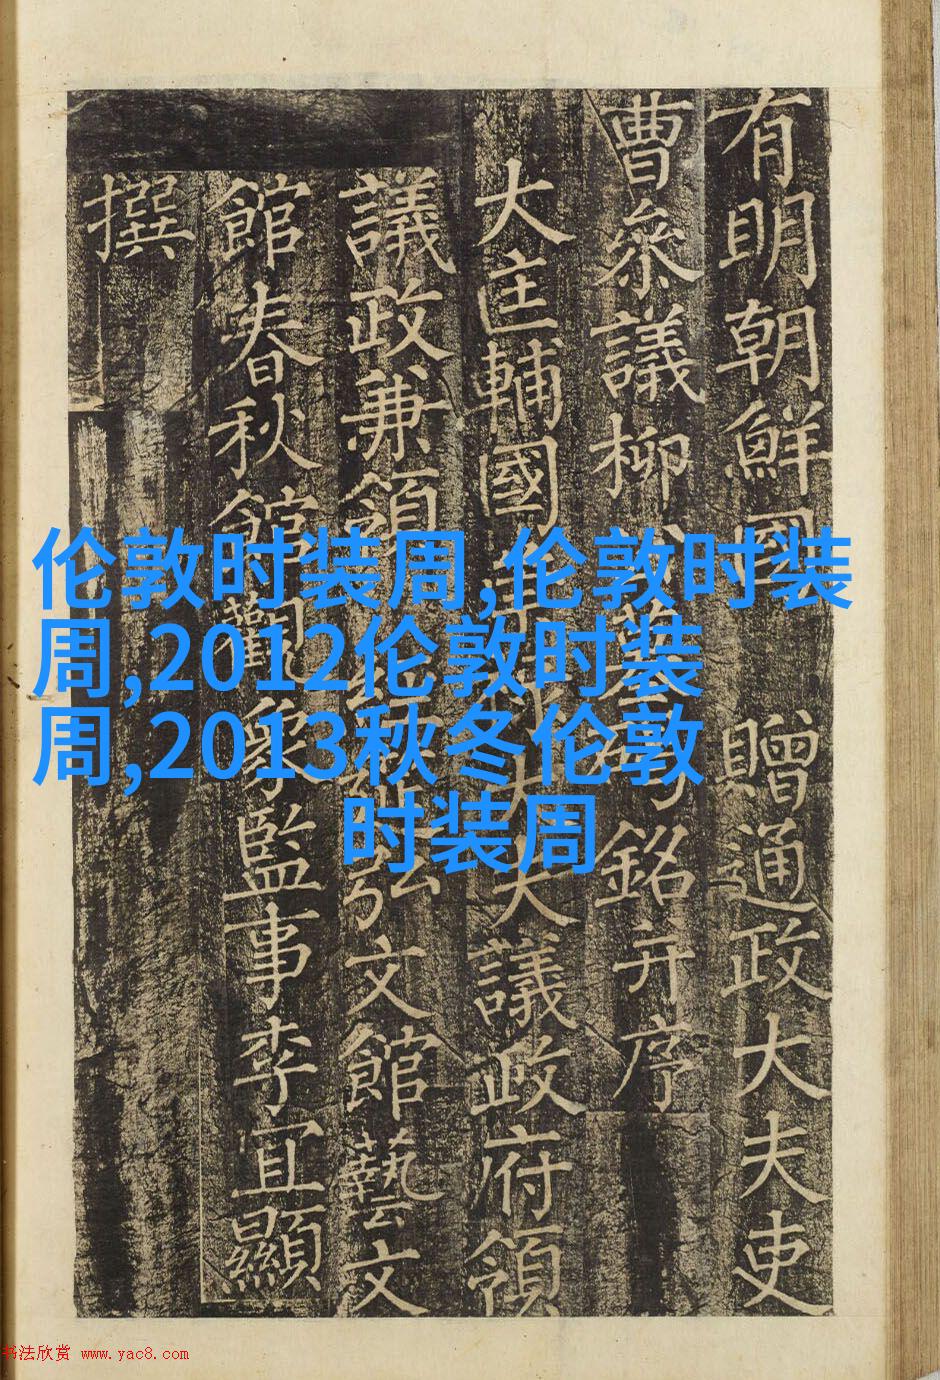 有明朝鮮國 贈通政大夫吏
曹叅議柳 銘并序
大匡輔國 大議政府領
議政兼領 弘文館藝文
館春秋館觀象監事李宜顯
撰
伦敦时装周,伦敦时装
周,2012伦敦时装
周,2013秋冬伦敦
时装周
书法欣赏 www.yac8.com